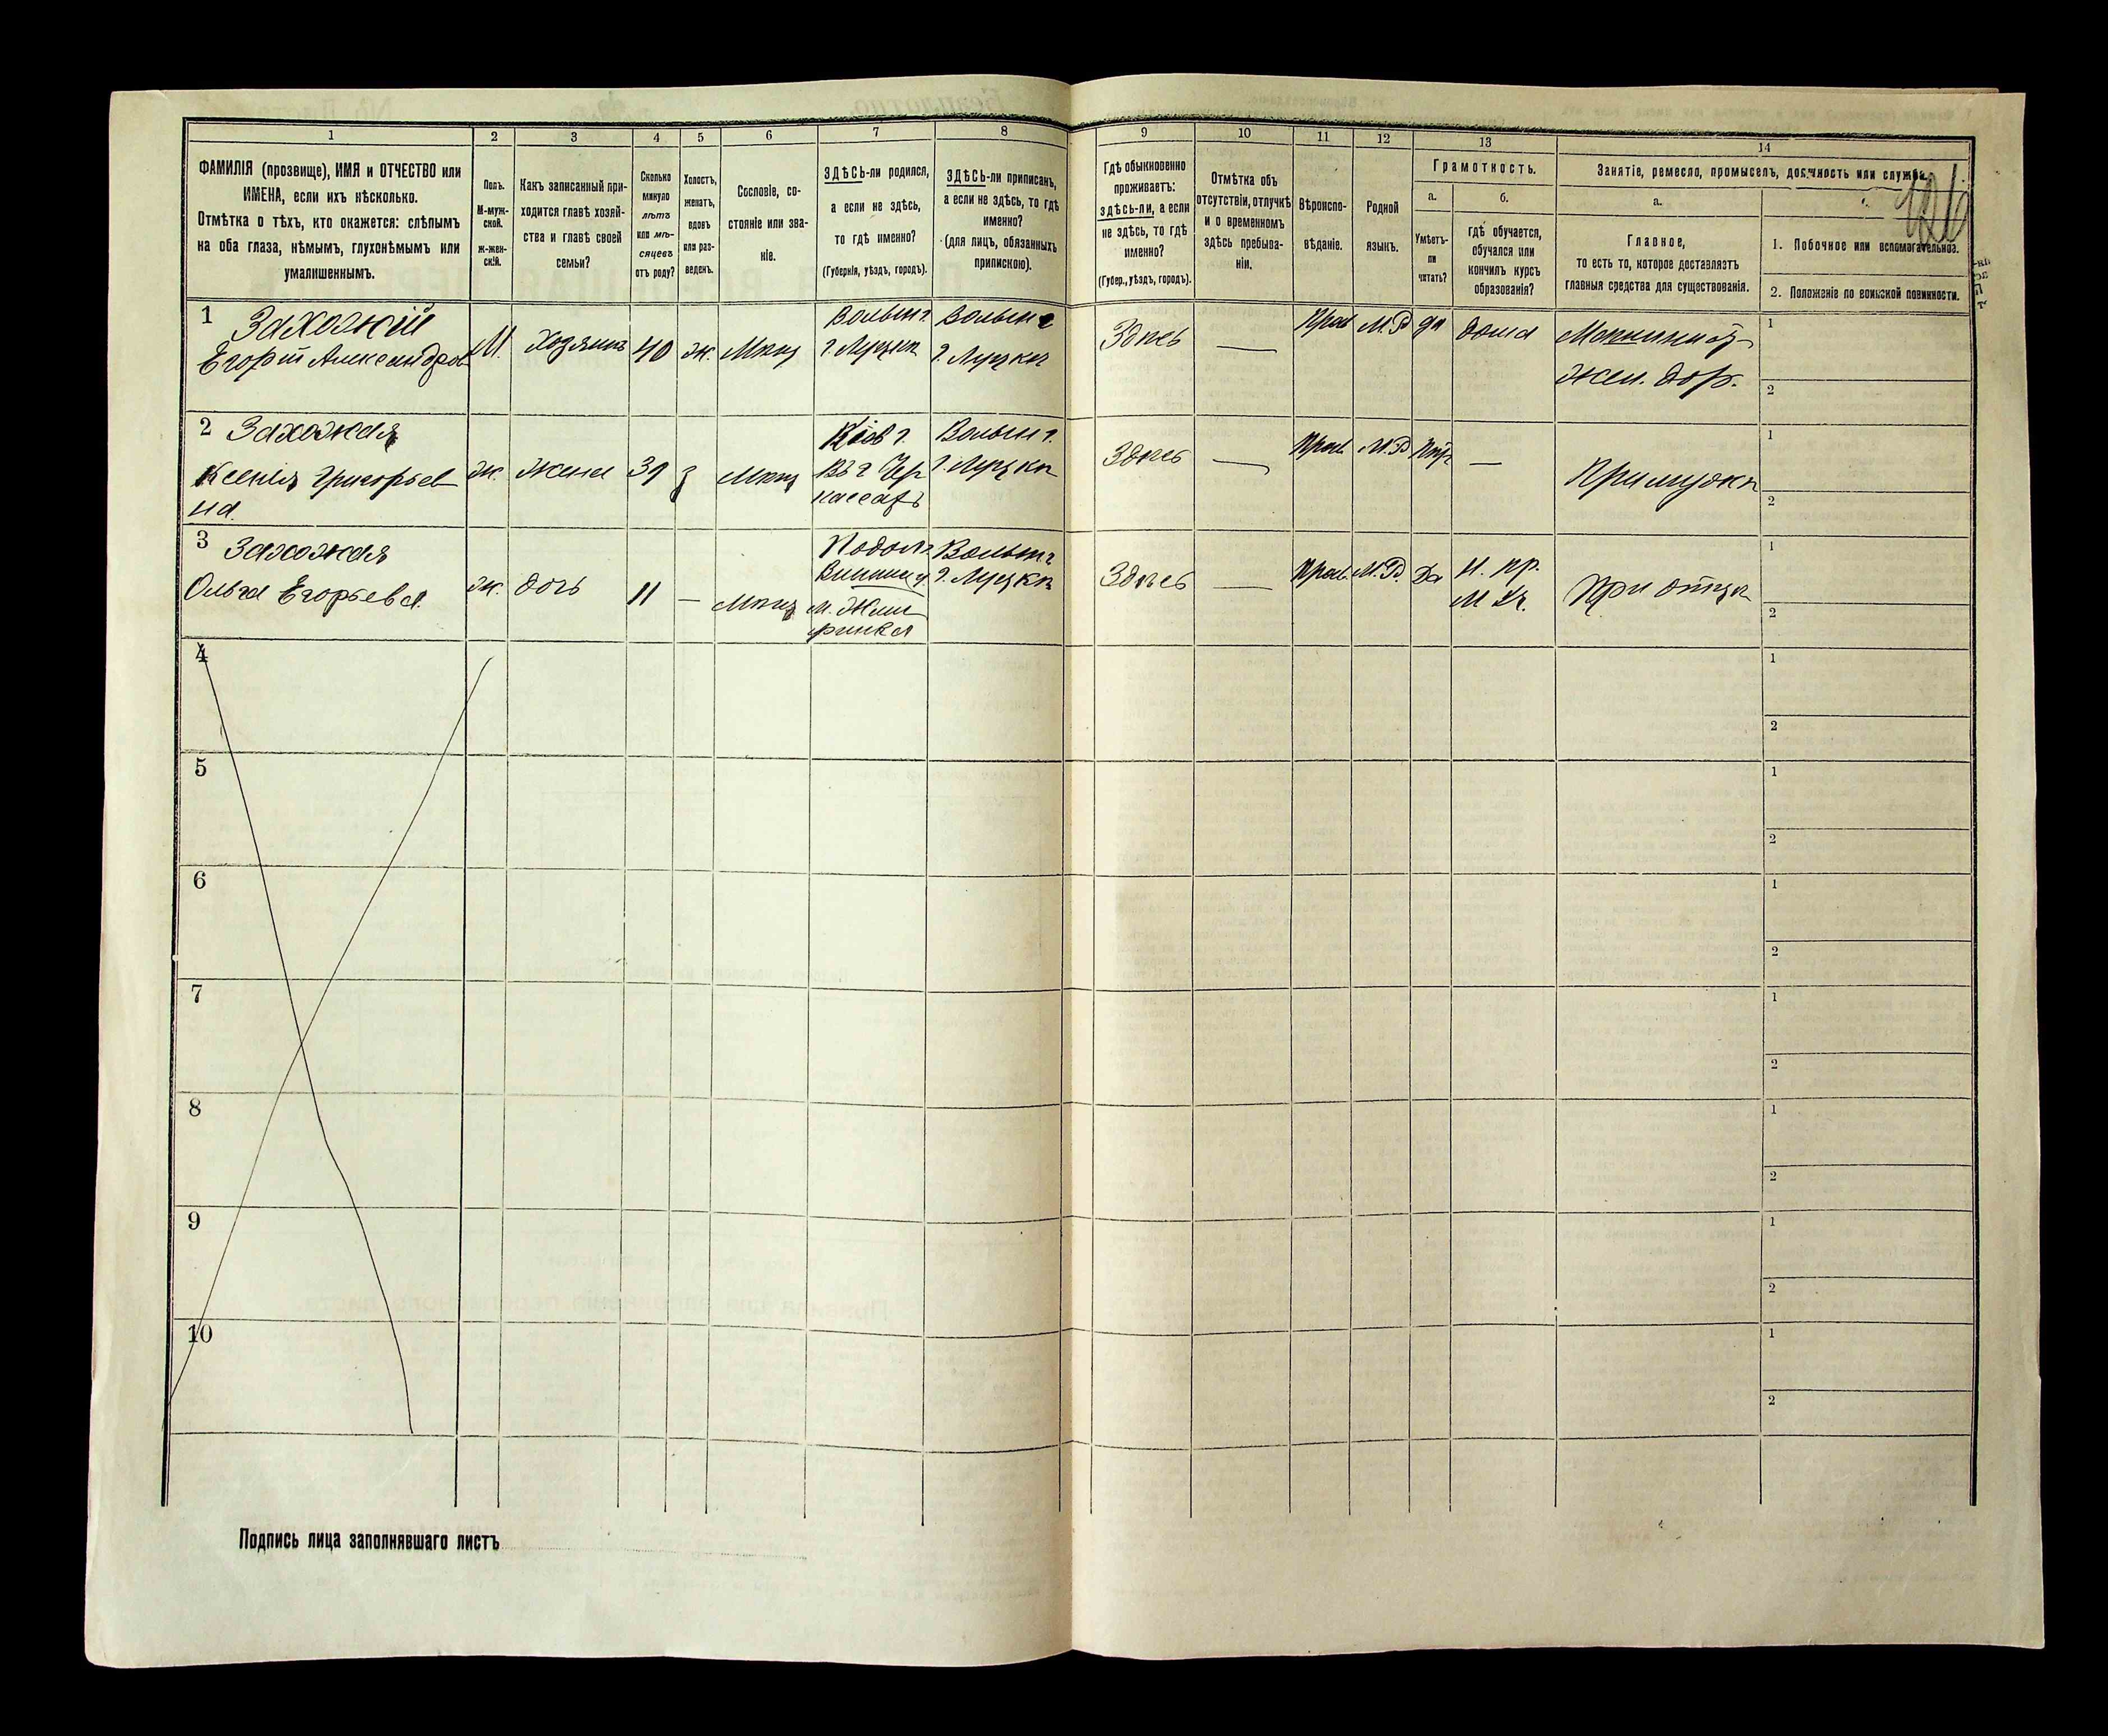 1 2 3 4 5 6 7 8 9 10 11 12 13 14
ФАМИЛІЯ (прозвище), ИМЯ и ОТЧЕСТВО или
ИМЕНА, если ихъ нѣсколько.
Отмѣтка о тѣхъ, кто окажется: слѣпымъ
на оба глаза, нѣмымъ, глухонѣмымъ или
умалишеннымъ.
Полъ.
М-муж-
ской.
ж-жен-
скій.
Какъ записанный при-
ходится главѣ хозяй-
ства и главѣ своей
семьи?
Сколько
минуло
лѣтъ
или мѣ-
сяцевъ
отъ роду?
Холостъ,
женатъ,
вдовъ
или раз-
веденъ.
Сословіе, со-
стояніе или зва-
ніе.
ЗДѢСЬ-ли родился,
а если не здѣсь,
то гдѣ именно?
(Губернія, уѣздъ, городъ).
ЗДѢСЬ-ли приписанъ,
а если не здѣсь, то гдѣ
именно?
(для лицъ, обязанныхъ
припискою).
Гдѣ обыкновенно
проживаетъ:
здѣсь-ли, а если
не здѣсь, то гдѣ
именно?
(Губер., уѣздъ, городъ).
Отмѣтка объ
отсутствіи, отлучкѣ
и о временномъ
здѣсь пребыва-
ніи.
Вѣроиспо-
вѣданіе.
Родной
языкъ.
Грамотность.
а.
Умѣетъ-
ли
читать?
б.
гдѣ обучается,
обучался или
кончилъ курсъ
образованія?
Занятіе, ремесло, промыселъ, должность или служба.
126
а.
Главное,
то есть то, которое доставляетъ
главныя средства для существованія.
1. Побочное или вспомогательное.
2. Положеніе по воинской повинности.
1 Захожій
Егорій Александров
М.
Хозяинъ
40
ж.
Мѣщ
Волын г.
г. Луцкѣ
Волын г
г. Луцкѣ
Здѣсь
—
Прав
М. Р
да
дома
жел. дор.
1
2
2 Захожая
Ксенія Григорьев
на
ж.
жена
39
з
Мѣщ
Кіев г.
Волын г.
г. Луцкѣ
Здѣсь
—
Прав.
М. Р
—
При мужѣ
1
2
3 Захожая
Ольга Егорьева
ж.
дочь
11
—
Мѣщ
Подол г
Винниц у
м. Жме
ринка
Волын г
г. Луцкѣ
Здѣсь
—
Прав.
М. Р.
Да
Н. пр.
М Уч.
При отцѣ
1
2
4
1
2
5
1
2
6
1
2
7
1
2
8
1
2
9
1
2
10
1
2
Подпись лица заполнявшаго листъ